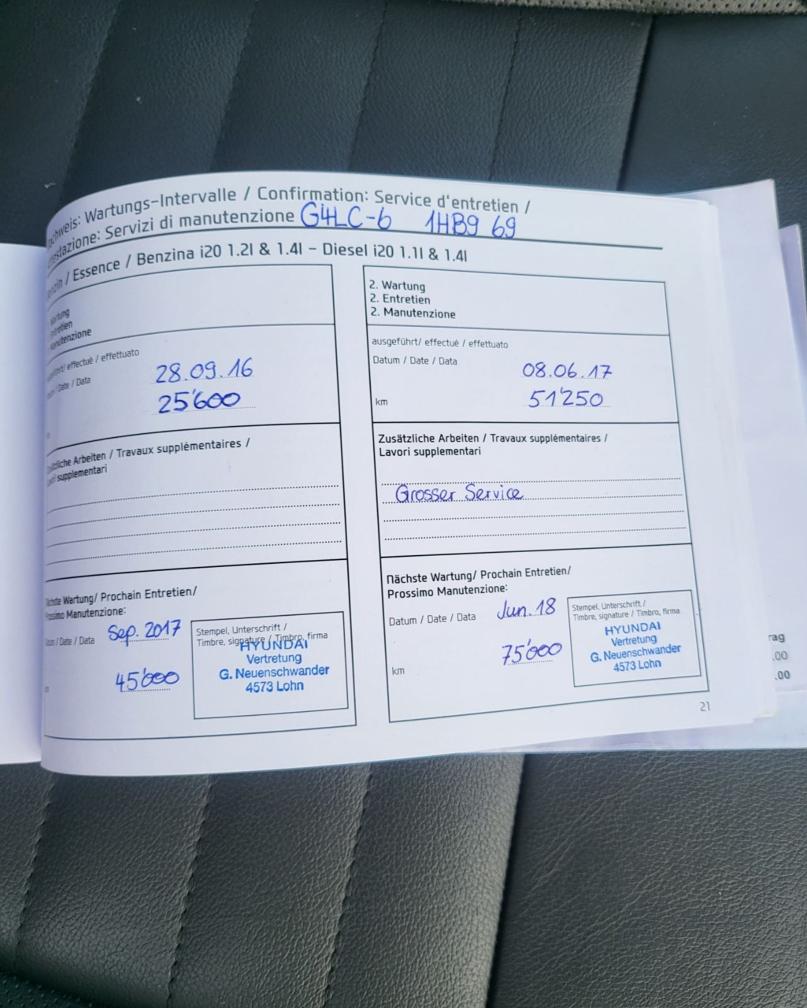 Wartungs-Intervalle / Confirmation: Service d'entretien /
Servizi di manutenzione G4LC-6 1HB9 69
/ Essence / Benzina i20 1.2l & 1.4l - Diesel i20 1.1l & 1.4l
effectué / effettuato
/ Date / Data 28.09.16
25'600
Arbeiten / Travaux supplémentaires /
supplementari
Wartung/ Prochain Entretien/
Manutenzione:
/ Date / Data Sep. 2017
45'000
Stempel, Unterschrift /
Timbre, signature / Timbro, firma
HYUNDAI
Vertretung
G. Neuenschwander
4573 Lohn
2. Wartung
2. Entretien
2. Manutenzione
ausgeführt/ effectué / effettuato
Datum / Date / Data 08.06.17
km 51'250
Zusätzliche Arbeiten / Travaux supplémentaires /
Lavori supplementari
Grosser Service
Nächste Wartung/ Prochain Entretien/
Prossimo Manutenzione:
Datum / Date / Data Jun. 18
km 75'000
Stempel, Unterschrift /
Timbre, signature / Timbro, firma
HYUNDAI
Vertretung
G. Neuenschwander
4573 Lohn
21
.00
.00